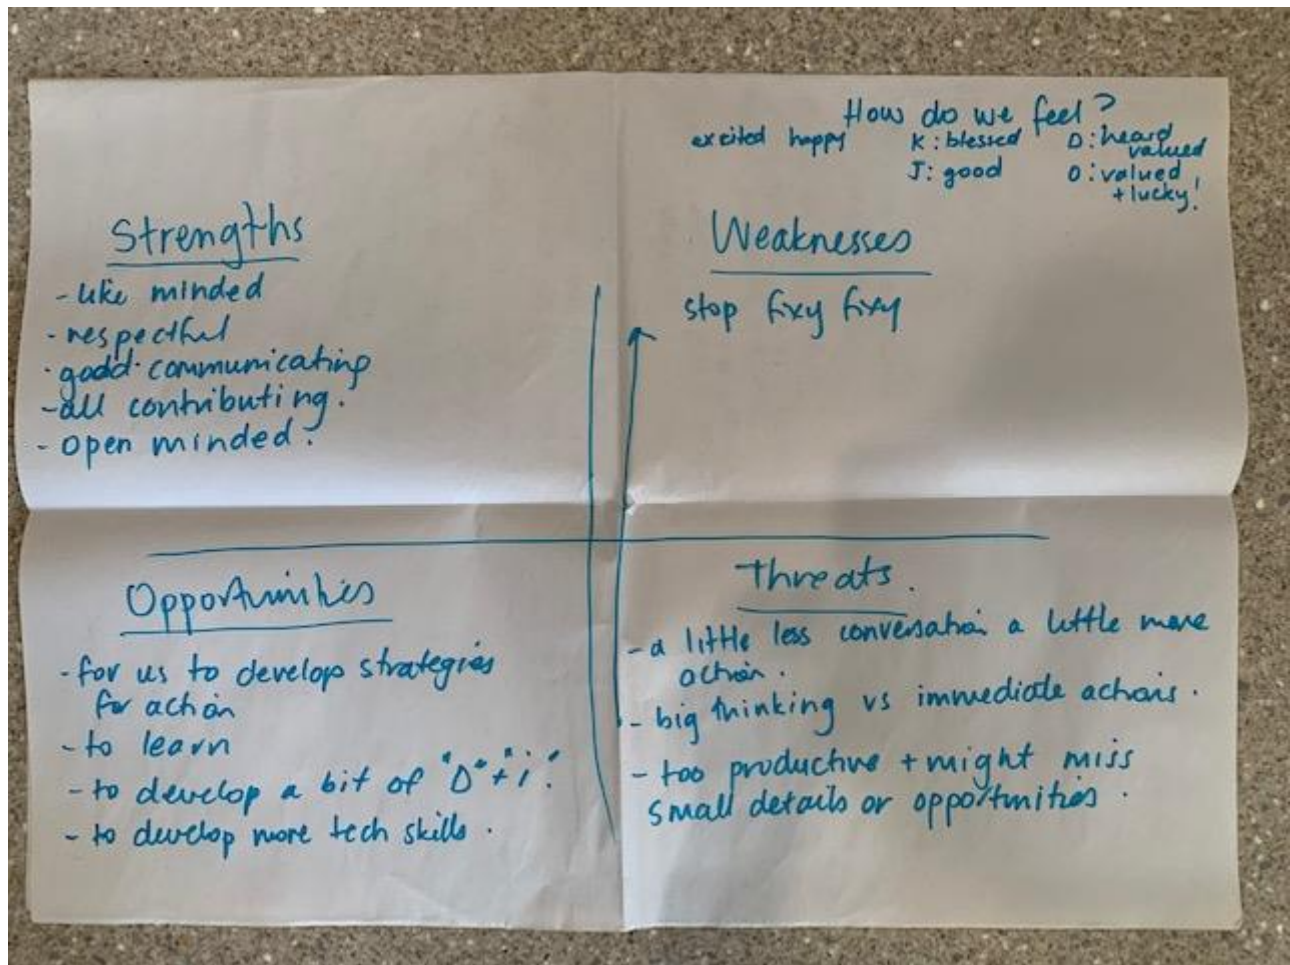 How do we feel?
excited happy K: blessed D: heard
valued
J: good O: valued
+ lucky!
Strengths
- like minded
- respectful
- godd communicating
- all contributing.
- open minded.
Weaknesses
stop fixy fixy
Opportunities
- for us to develop strategies
for action
- to learn
- to develop a bit of "D" + "i".
- to develop more tech skills.
Threats.
- a little less conversation a little more
action.
- big thinking vs immediate actions.
- too productive + might miss
small details or opportunities.